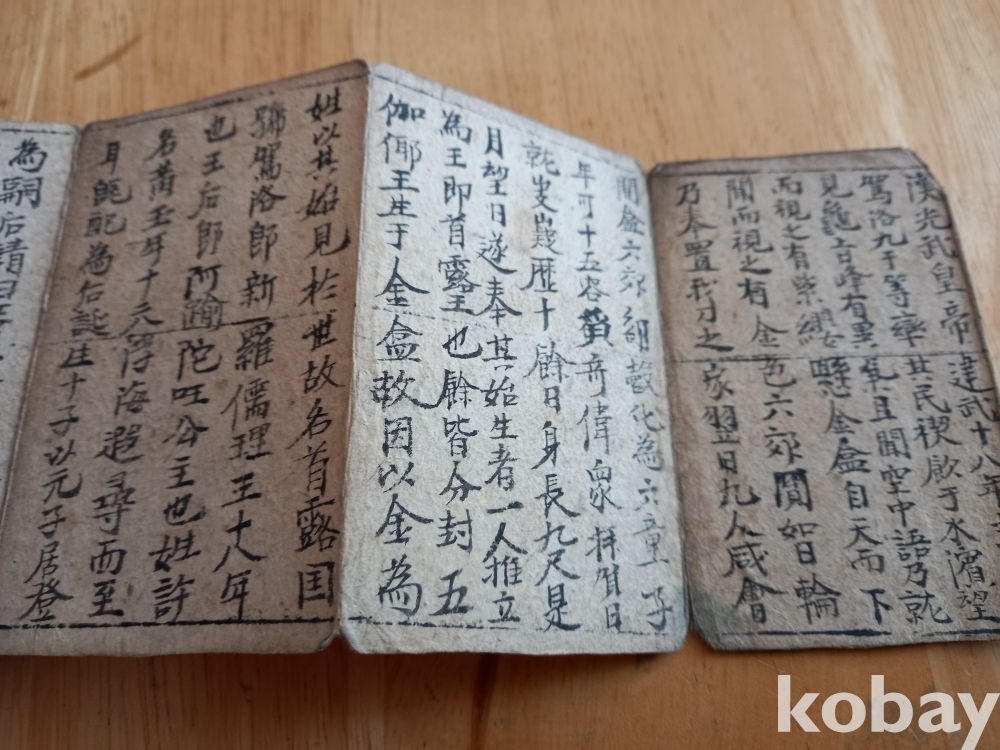 漢光武皇帝建武十八年
駕洛九干等率其民禊飮于水濱望
見龜旨峰有異氣且聞空中語乃就
而視之有紫纓懸金盒自天而下
開而視之有金色六卵圓如日輪
乃奉置我刀之家翌日九人咸會
開盒六卵剖殼化為六童子
年可十五容貌奇偉衆拜賀日
就岐嶷歷十餘日身長九尺是
月望日遂奉其始生者一人推立
為王即首露王也餘皆分封五
伽倻王生于金盒故因以金為
姓以其始見於世故名首露国
號駕洛郎新羅儒理王十八年
也王后郎阿踰陀国公主也姓許
名黃玉年十六浮海遐尋而至
聘配為后誕生十子以元子居登
為嗣后請
kobay